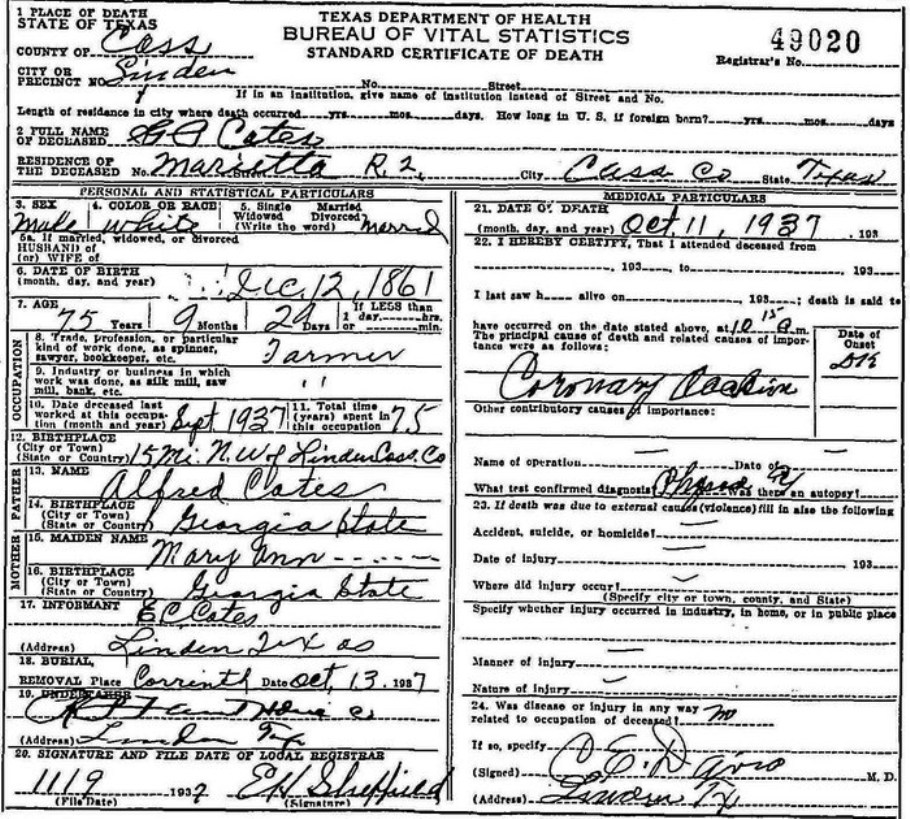 1 PLACE OF DEATH
STATE OF TEXAS
TEXAS DEPARTMENT OF HEALTH
BUREAU OF VITAL STATISTICS
STANDARD CERTIFICATE OF DEATH
49020
Registrar's No.
COUNTY OF Cass
CITY OR
PRECINCT NO. Linden No. Street
If in an institution, give name of institution instead of Street and No.
Length of residence in city where death occurred yrs. mos. days. How long in U. S. if foreign born? yrs. mos. days
2 FULL NAME
OF DECEASED Cates
RESIDENCE OF
THE DECEASED No. Marietta Street R. 2, City Cass Co State Texas
PERSONAL AND STATISTICAL PARTICULARS
3. SEX 4. COLOR OR RACE 5. Single Married
Widowed Divorced
(Write the word)
Male white Married
5a. If married, widowed, or divorced
HUSBAND of
(or) WIFE of
6. DATE OF BIRTH
(month, day, and year) Dec. 12, 1861
7. AGE If LESS than
75 Years 9 Months 29 Days 1 day, hrs.
or min.
OCCUPATION
8. Trade, profession, or particular
kind of work done, as spinner,
sawyer, bookkeeper, etc. Farmer
9. Industry or business in which
work was done, as silk mill, saw
mill, bank, etc. " "
10. Date deceased last
worked at this occupa-
tion (month and year) Sept 1937
11. Total time
(years) spent in
this occupation 75
12. BIRTHPLACE
(City or Town)
(State or Country) 15 Mi. N.W. of Linden Cass. Co
FATHER
13. NAME Alfred Cates
14. BIRTHPLACE
(City or Town)
(State or Country) Georgia State
MOTHER
15. MAIDEN NAME Mary Ann - - - - - -
16. BIRTHPLACE
(City or Town)
(State or Country) Georgia State
17. INFORMANT E C Cates
(Address) Linden Texas
18. BURIAL,
REMOVAL Place Corrinth Date Oct, 13. 1937
19. UNDERTAKER
(Address) Linden Tex
20. SIGNATURE AND FILE DATE OF LOCAL REGISTRAR
1119 1937 EH Sheffield
(File Date) (Signature)
MEDICAL PARTICULARS
21. DATE OF DEATH
(month, day, and year) Oct. 11, 1937, 193
22. I HEREBY CERTIFY, That I attended deceased from
, 193 , to , 193
I last saw h alive on , 193 ; death is said to
have occurred on the date stated above, at 10 15 a.m.
The principal cause of death and related causes of impor-
tance were as follows:
Date of
Onset
DK
Coronary
Other contributory causes of importance:
Name of operation Date of
What test confirmed diagnosis? Was there an autopsy?
23. If death was due to external causes (violence) fill in also the following
Accident, suicide, or homicide?
Date of injury 193
Where did injury occur?
(Specify city or town, county, and State)
Specify whether injury occurred in industry, in home, or in public place
Manner of injury
Nature of injury
24. Was disease or injury in any way
related to occupation of deceased? no
If so, specify
(Signed) C. E. Davis M. D.
(Address) Linden Tx